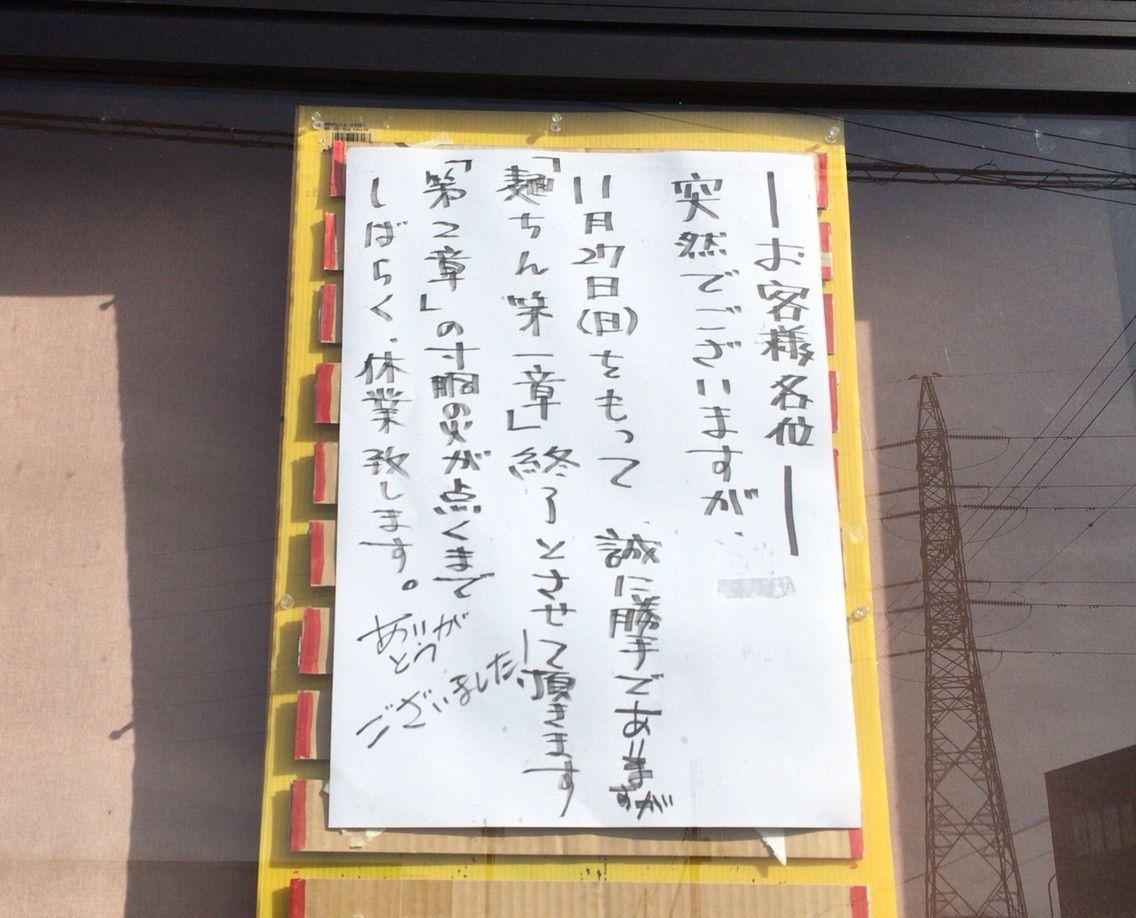 ―お客様各位―
突然でございますが、
11月27日(日)をもって 誠に勝手でありますが
「麺ちん 第一章」終了とさせて頂きます
「第2章」の寸胴の火が点くまで
しばらく、休業致します。
ありがとうございました!